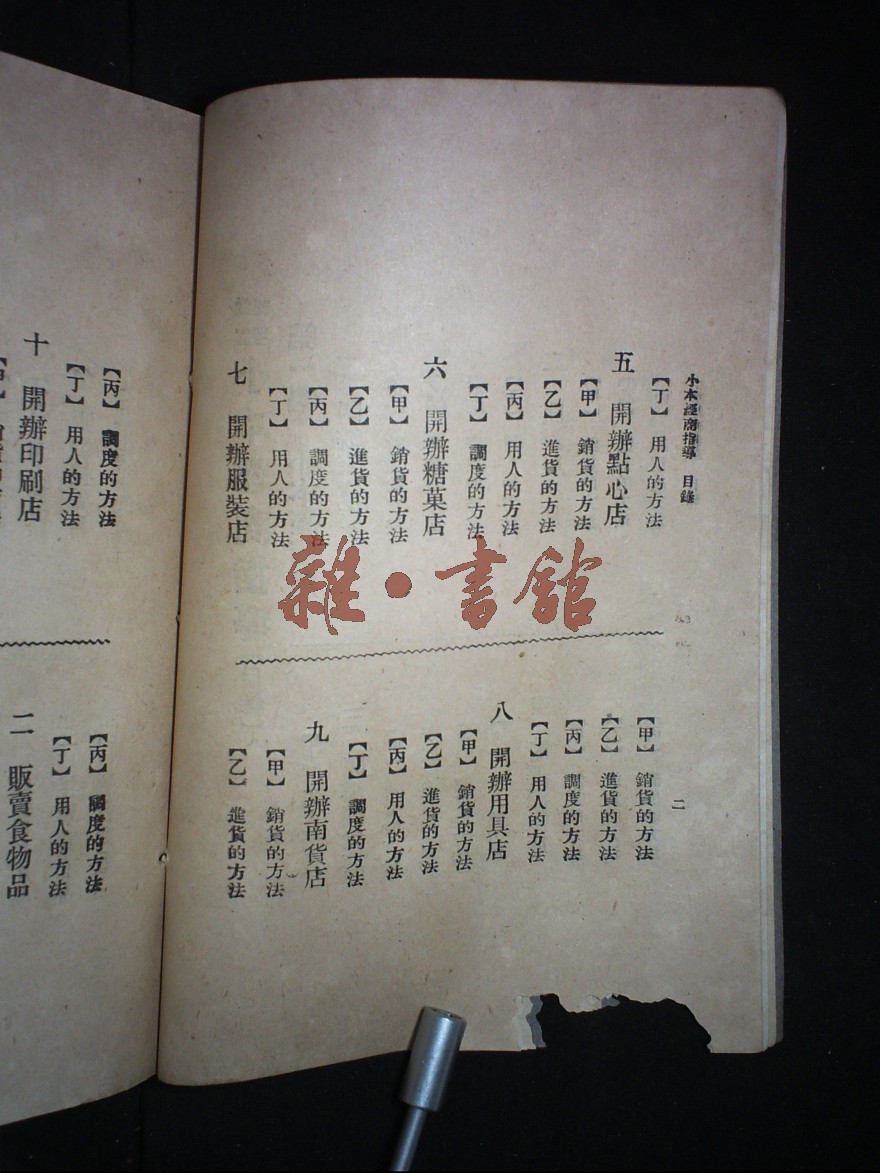 小本經商指導 目錄
二
【丁】 用人的方法
五 開辦點心店
【甲】 銷貨的方法
【乙】 進貨的方法
【丙】 用人的方法
【丁】 調度的方法
六 開辦糖菓店
【甲】 銷貨的方法
【乙】 進貨的方法
【丙】 調度的方法
【丁】 用人的方法
七 開辦服裝店
【甲】 銷貨的方法
【乙】 進貨的方法
【丙】 調度的方法
【丁】 用人的方法
八 開辦用具店
【甲】 銷貨的方法
【乙】 進貨的方法
【丙】 用人的方法
【丁】 調度的方法
九 開辦南貨店
【甲】 銷貨的方法
【乙】 進貨的方法
【丙】 調度的方法
【丁】 用人的方法
十 開辦印刷店
【丙】 調度的方法
【丁】 用人的方法
二 販賣食物品
雜·書館